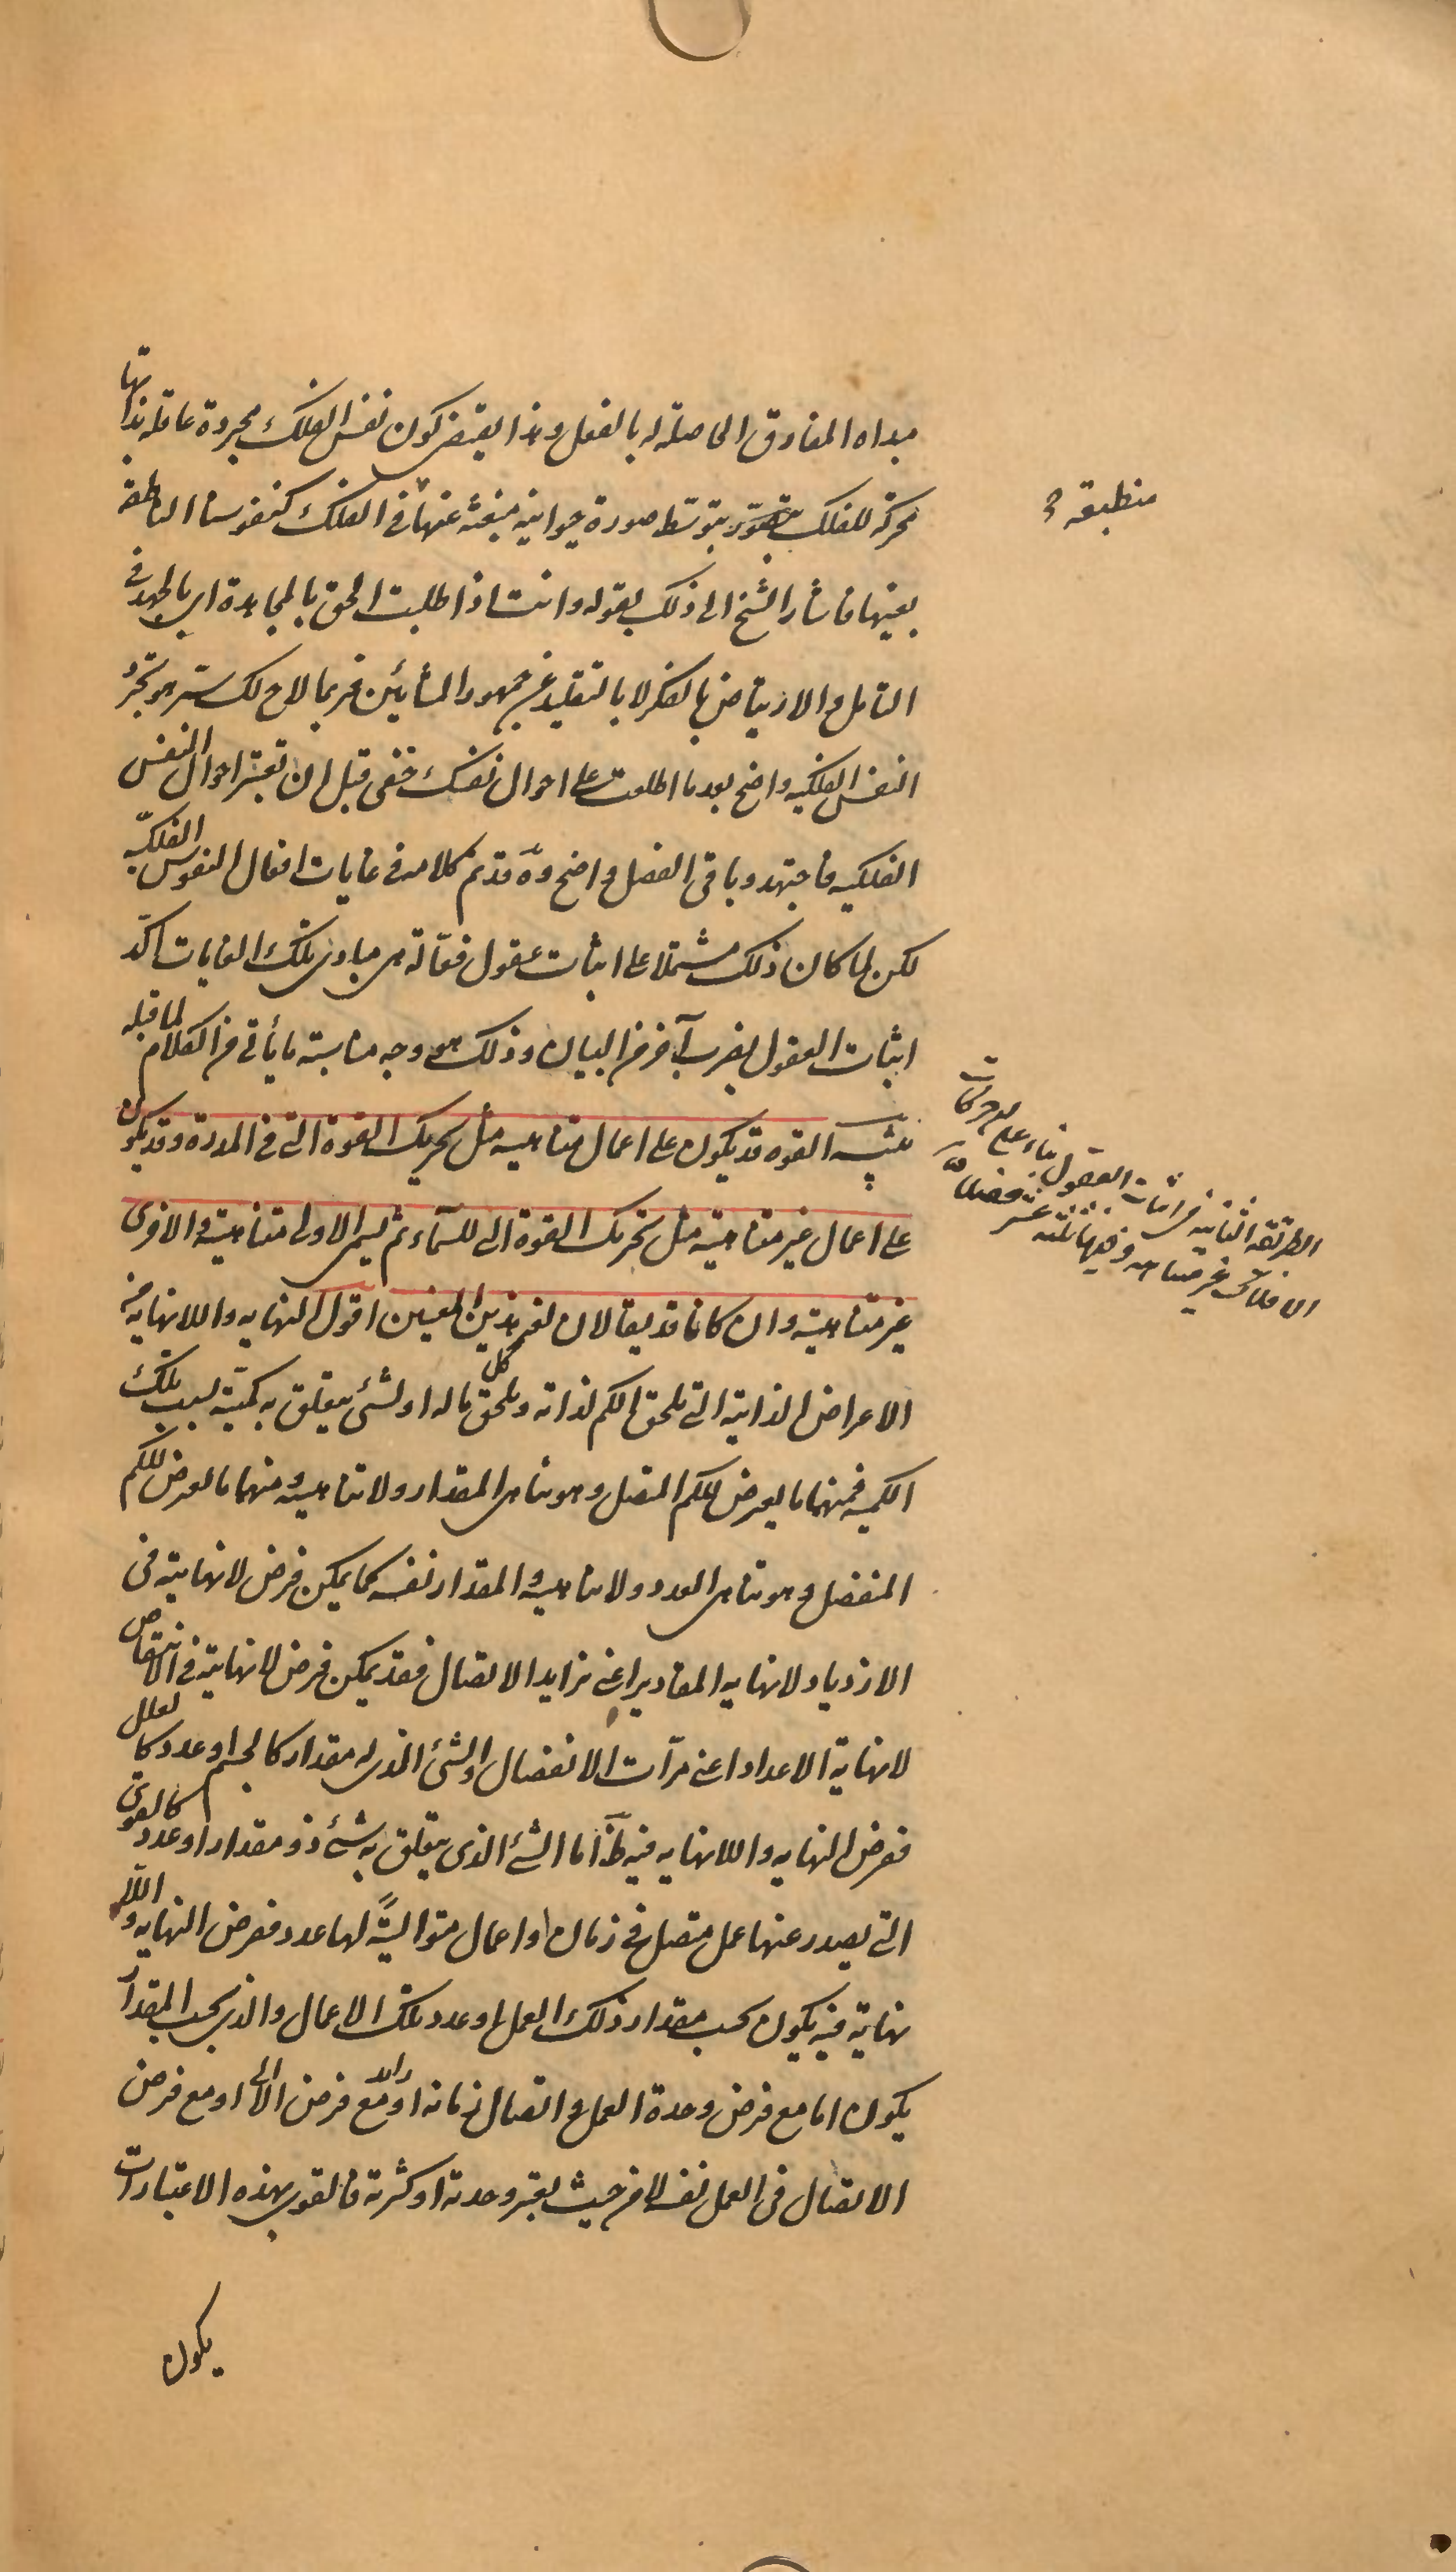 مبداه المفارق الحاصلة له بالفعل وهذا يقتضى كون نفس الفلك مجردة عاقلة بذاتها
محركة للفلك بتوسّط صورة حيوانية منبعثة عنها فى الفلك كنفوسنا الناطقة
منطبقة
بعينها فاشار الشيخ الى ذلك بقوله وانت اذا طلبت الحق بالمجاهدة اى بالجهد فى
التامل والارتياض بالفكر لا بالتقليد عن جمهور المشائين فربما لاح لك سرّ هو تجرد
النفس الفلكيه واضح بعد ما اطلعت على احوال نفسك خفى قبل ان تعتبر احوال النفس
الفلكيه فاجتهد وباقى الفصل واضح وقد تم كلامه فى غايات افعال النفوس الفلكيّه
لكن لما كان ذلك مشتملا على اثبات عقول فعّالة هى مبادى تلك الغايات اكّد
اثبات العقول بضرب آخر من البيان وذلك هو وجه مناسبة ما يأتى من الكلام لما قبله
تنبيه القوه قد يكون على اعمال متناهيه مثل تحريك القوة التى فى المدرة وقد يكون
الطريقه الثانيه فى اثبات العقول بناء على ان حركات
الافلاك غير متناهيه وفيها ثلثه عشر فصلا
على اعمال غير متناهية مثل تحريك القوة التى للسماء ثم يسمى الاولى متناهية والاخرى
غير متناهية وان كانا قد يقالان لغير هذين المعنيين اقول النهايه واللانهاية من
الاعراض الذاتية التى تلحق الكم لذاته ويلحق كل ما له او لشئ يتعلق به كمّية بسبب تلك
الكميه فمنها ما يعرض للكم المتصل وهو تناهى المقدار ولا تناهيه ومنها ما يعرض للكم
المنفصل وهو تناهى العدد ولا تناهيه والمقدار نفسه كما يمكن فرض لا نهاية فى
الازدياد لانهايه المقادير اعنى تزايد الاتصال فقد يمكن فرض لا نهايته فى الانتقاص
لانهاية الاعداد اعنى مرآت الانفصال والشئ الذى له مقدار كالجسم او عدد كالعلل
ففرض النهايه واللانهايه فيه ظ اما الشئ الذى يتعلق به شئ ذو مقدار او عدد كالقوى
التى يصدر عنها عمل متصل فى زمان او اعمال متوالية لها عدد ففرض النهايه واللا
نهاية فيه يكون بحسب مقدار ذلك العمل او عدد تلك الاعمال والذى بحسب المقدار
يكون اما مع فرض وحدة العمل واتصال زمانه او مع فرض الاتصال او مع فرض
الاتصال فى العمل نفسه لا من حيث يعتبر وحدته او كثرته فالقوى بهذه الاعتبارات
يكون